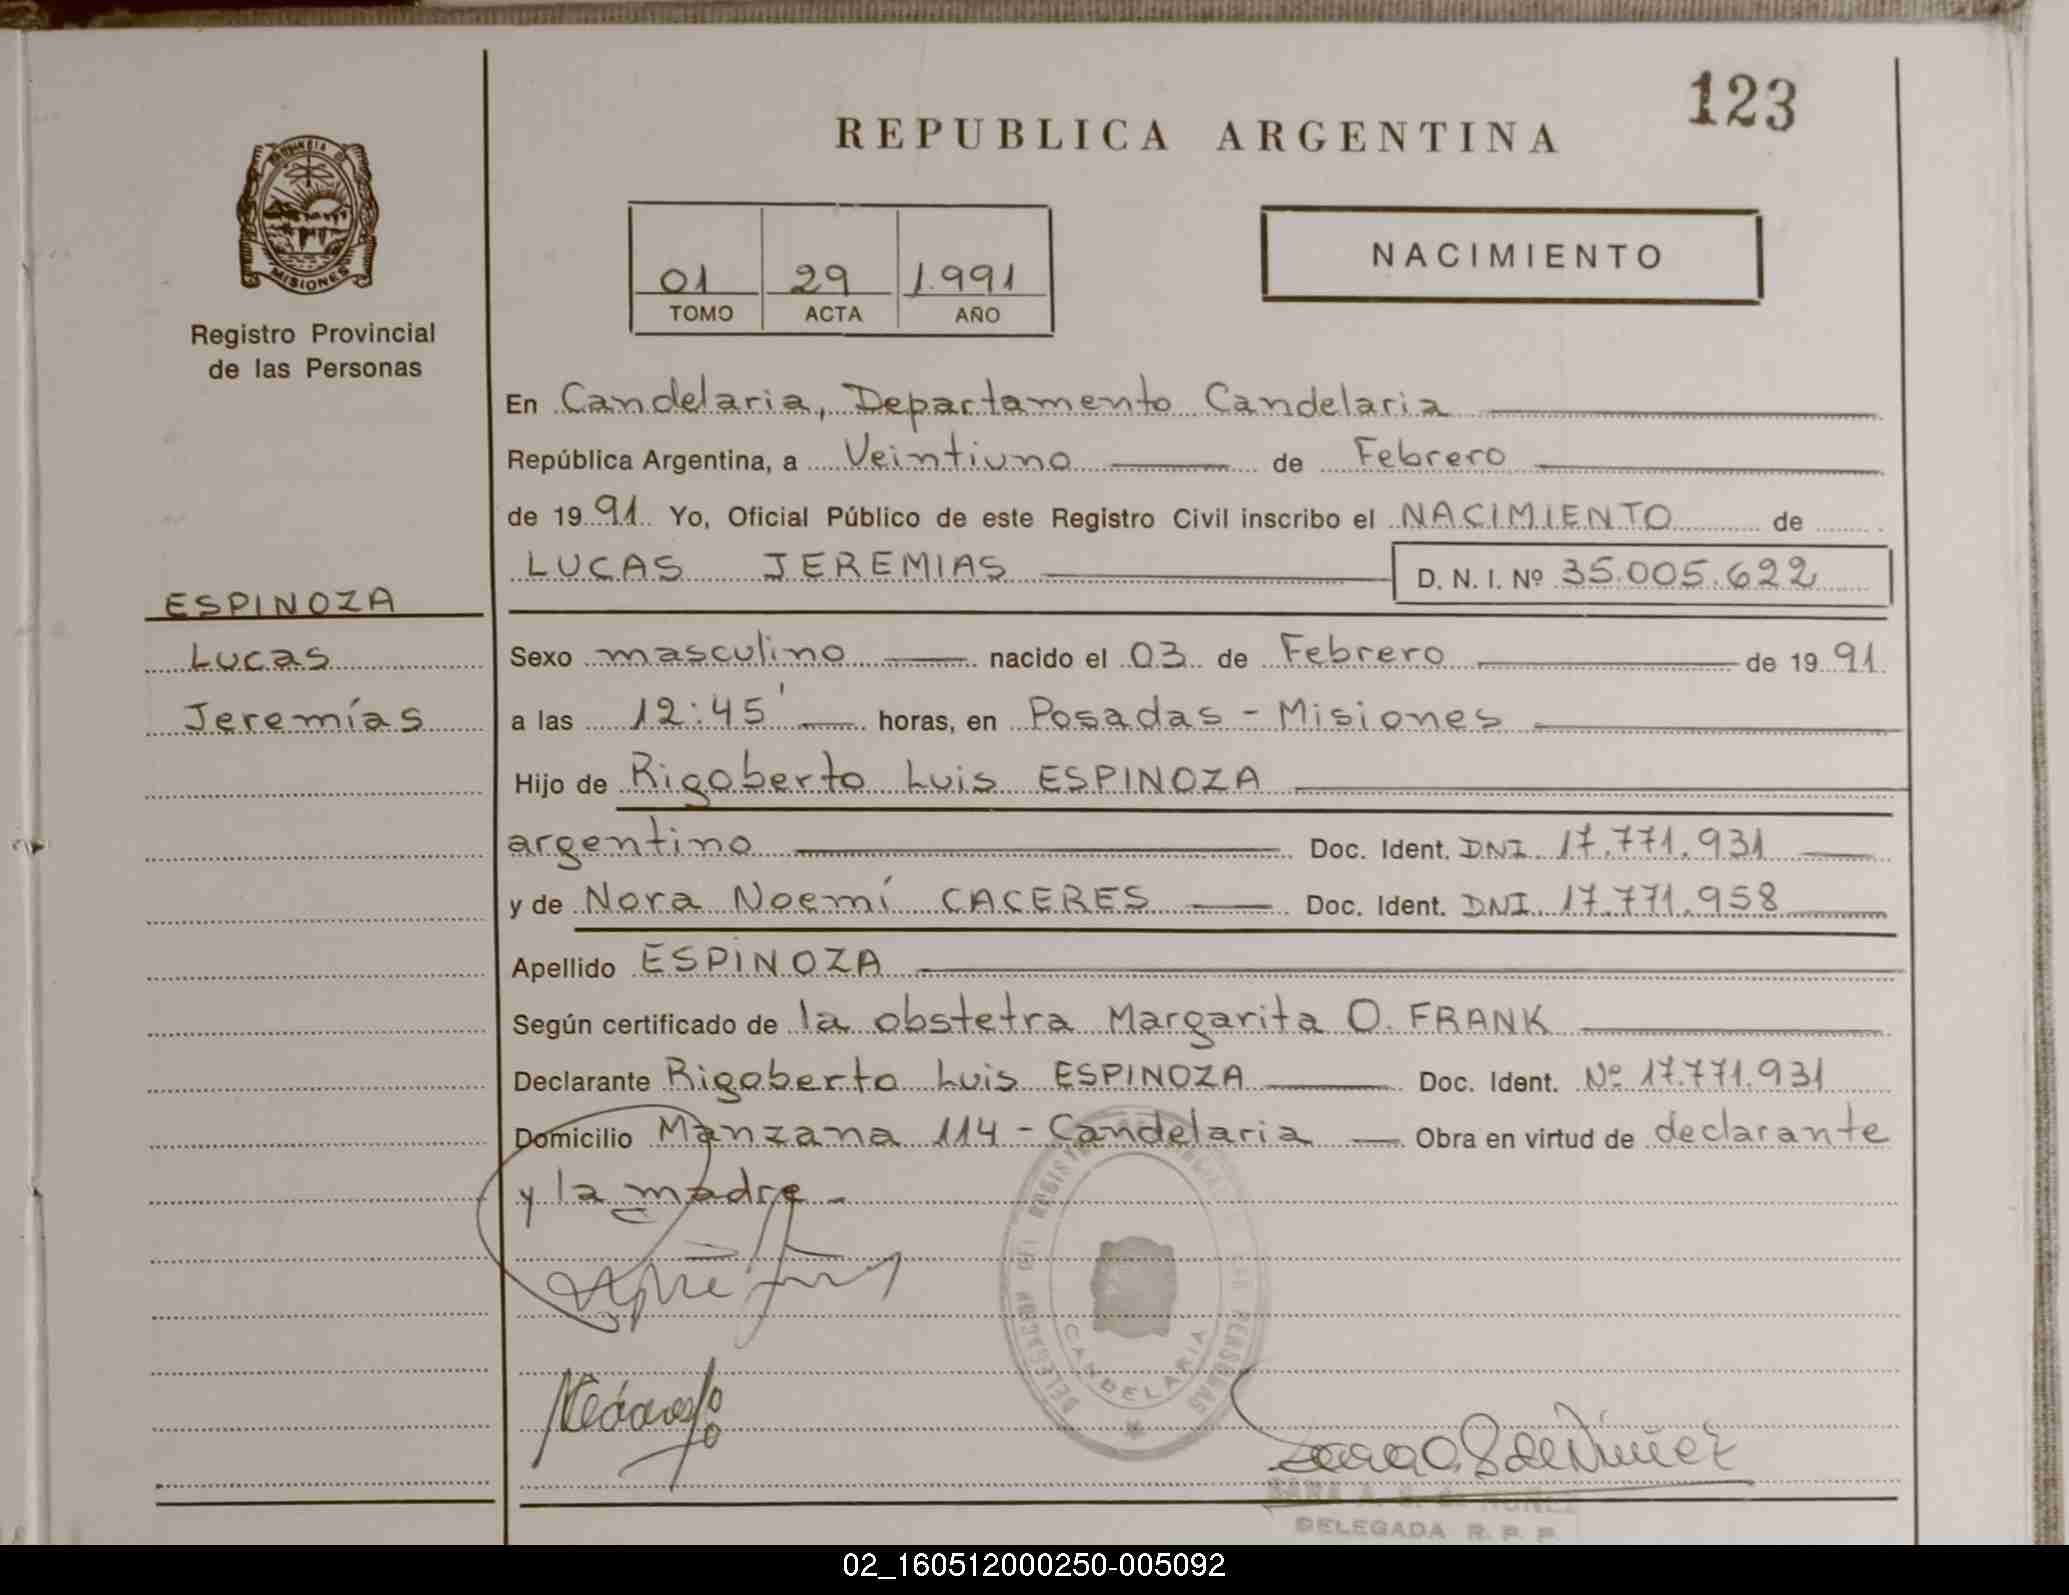 123
REPUBLICA ARGENTINA
PROVINCIA DE
MISIONES
Registro Provincial
de las Personas
01 29 1.991
TOMO ACTA AÑO
NACIMIENTO
En Candelaria, Departamento Candelaria
República Argentina, a Veintiuno de Febrero
de 1991 Yo, Oficial Público de este Registro Civil inscribo el NACIMIENTO de
LUCAS JEREMIAS D. N. I. Nº 35.005.622
ESPINOZA
Lucas
Jeremías
Sexo masculino nacido el 03 de Febrero de 1991
a las 12:45' horas, en Posadas - Misiones
Hijo de Rigoberto Luis ESPINOZA
argentino Doc. Ident. DNI. 17.771.931
y de Nora Noemí CACERES Doc. Ident. DNI. 17.771.958
Apellido ESPINOZA
Según certificado de la obstetra Margarita O. FRANK
Declarante Rigoberto Luis ESPINOZA Doc. Ident. Nº 17.771.931
Domicilio Manzana 114 - Candelaria Obra en virtud de declarante
y la madre -
DELEGACION REGISTRO PROVINCIAL DE LAS PERSONAS
CANDELARIA
SARA A. S. de NUÑEZ
DELEGADA R. P. P.
02_160512000250-005092